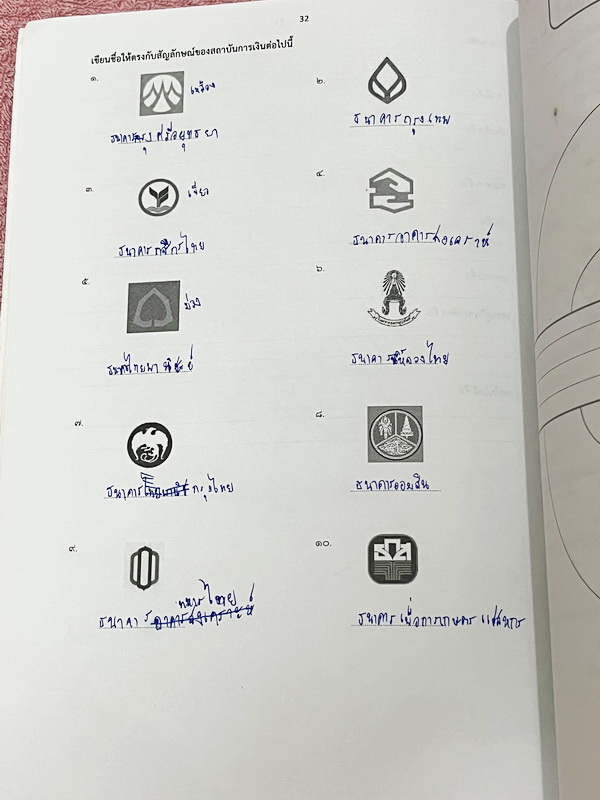 32
เขียนชื่อให้ตรงกับสัญลักษณ์ของสถาบันการเงินต่อไปนี้
๑. เหลือง
ธนาคารกรุงศรีอยุทธยา
๒.
ธนาคารกรุงเทพ
๓. เขียว
ธนาคารกสิกรไทย
๔.
ธนาคารอาคารสงเคราะห์
๕. ม่วง
ไทยพาณิชย์
๖.
ธนาคาร
๗.
ธนาคาร กรุงไทย
๘.
ธนาคารออมสิน
๙.
ทหารไทย
ธนาคาร อาคารสงเคราะห์
๑๐.
ธนาคารเพื่อการเกษตร